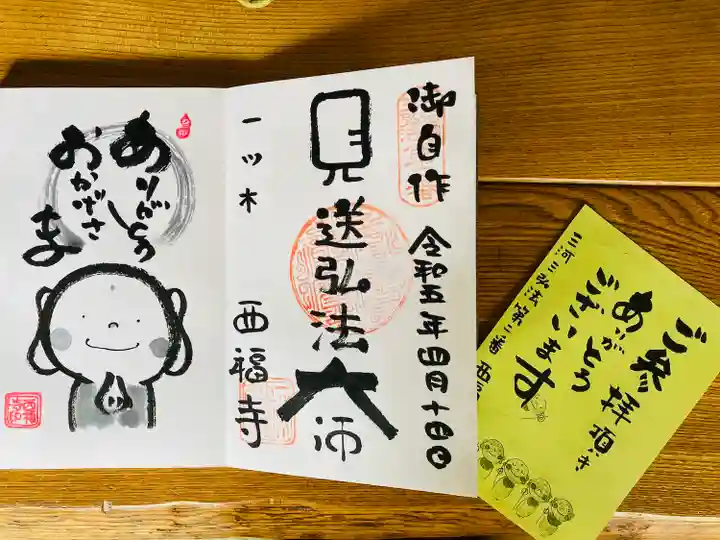 御自作
令和五年四月十日
見送弘法大師
一ツ木
西福寺
ありがとう
おかげさま
三河三弘法第二番
ご参拝頂き
ありがとう
ございます